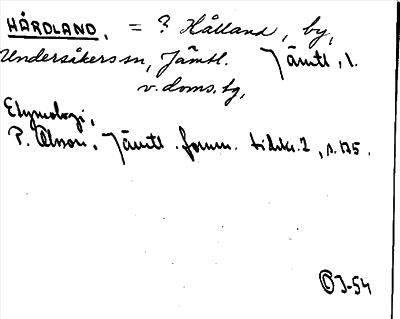 HÅRDLAND, = ? Hålland, by,
Undersåkers sn, Jämtl. Jämtl, l.
v. doms. tg,
Etymologi,
P. Olsson, Jämtl. fornm. tidskr. 2, s. 175.
OJ-54